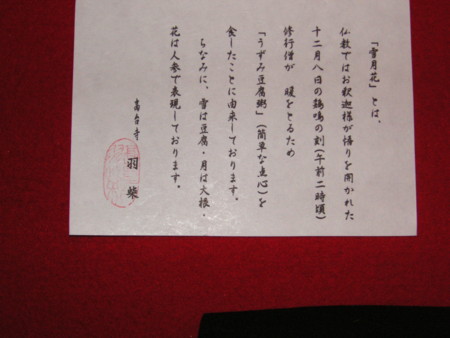 「雪月花」とは、
仏教ではお釈迦様が悟りを開かれた
十二月八日の鶏鳴の刻(午前二時頃)
修行僧が 暖をとるため
「うずみ豆腐粥」(簡単な点心)を
食したことに由来しております。
ちなみに、雪は豆腐・月は大根・
花は人参で表現しております。
高台寺 羽柴